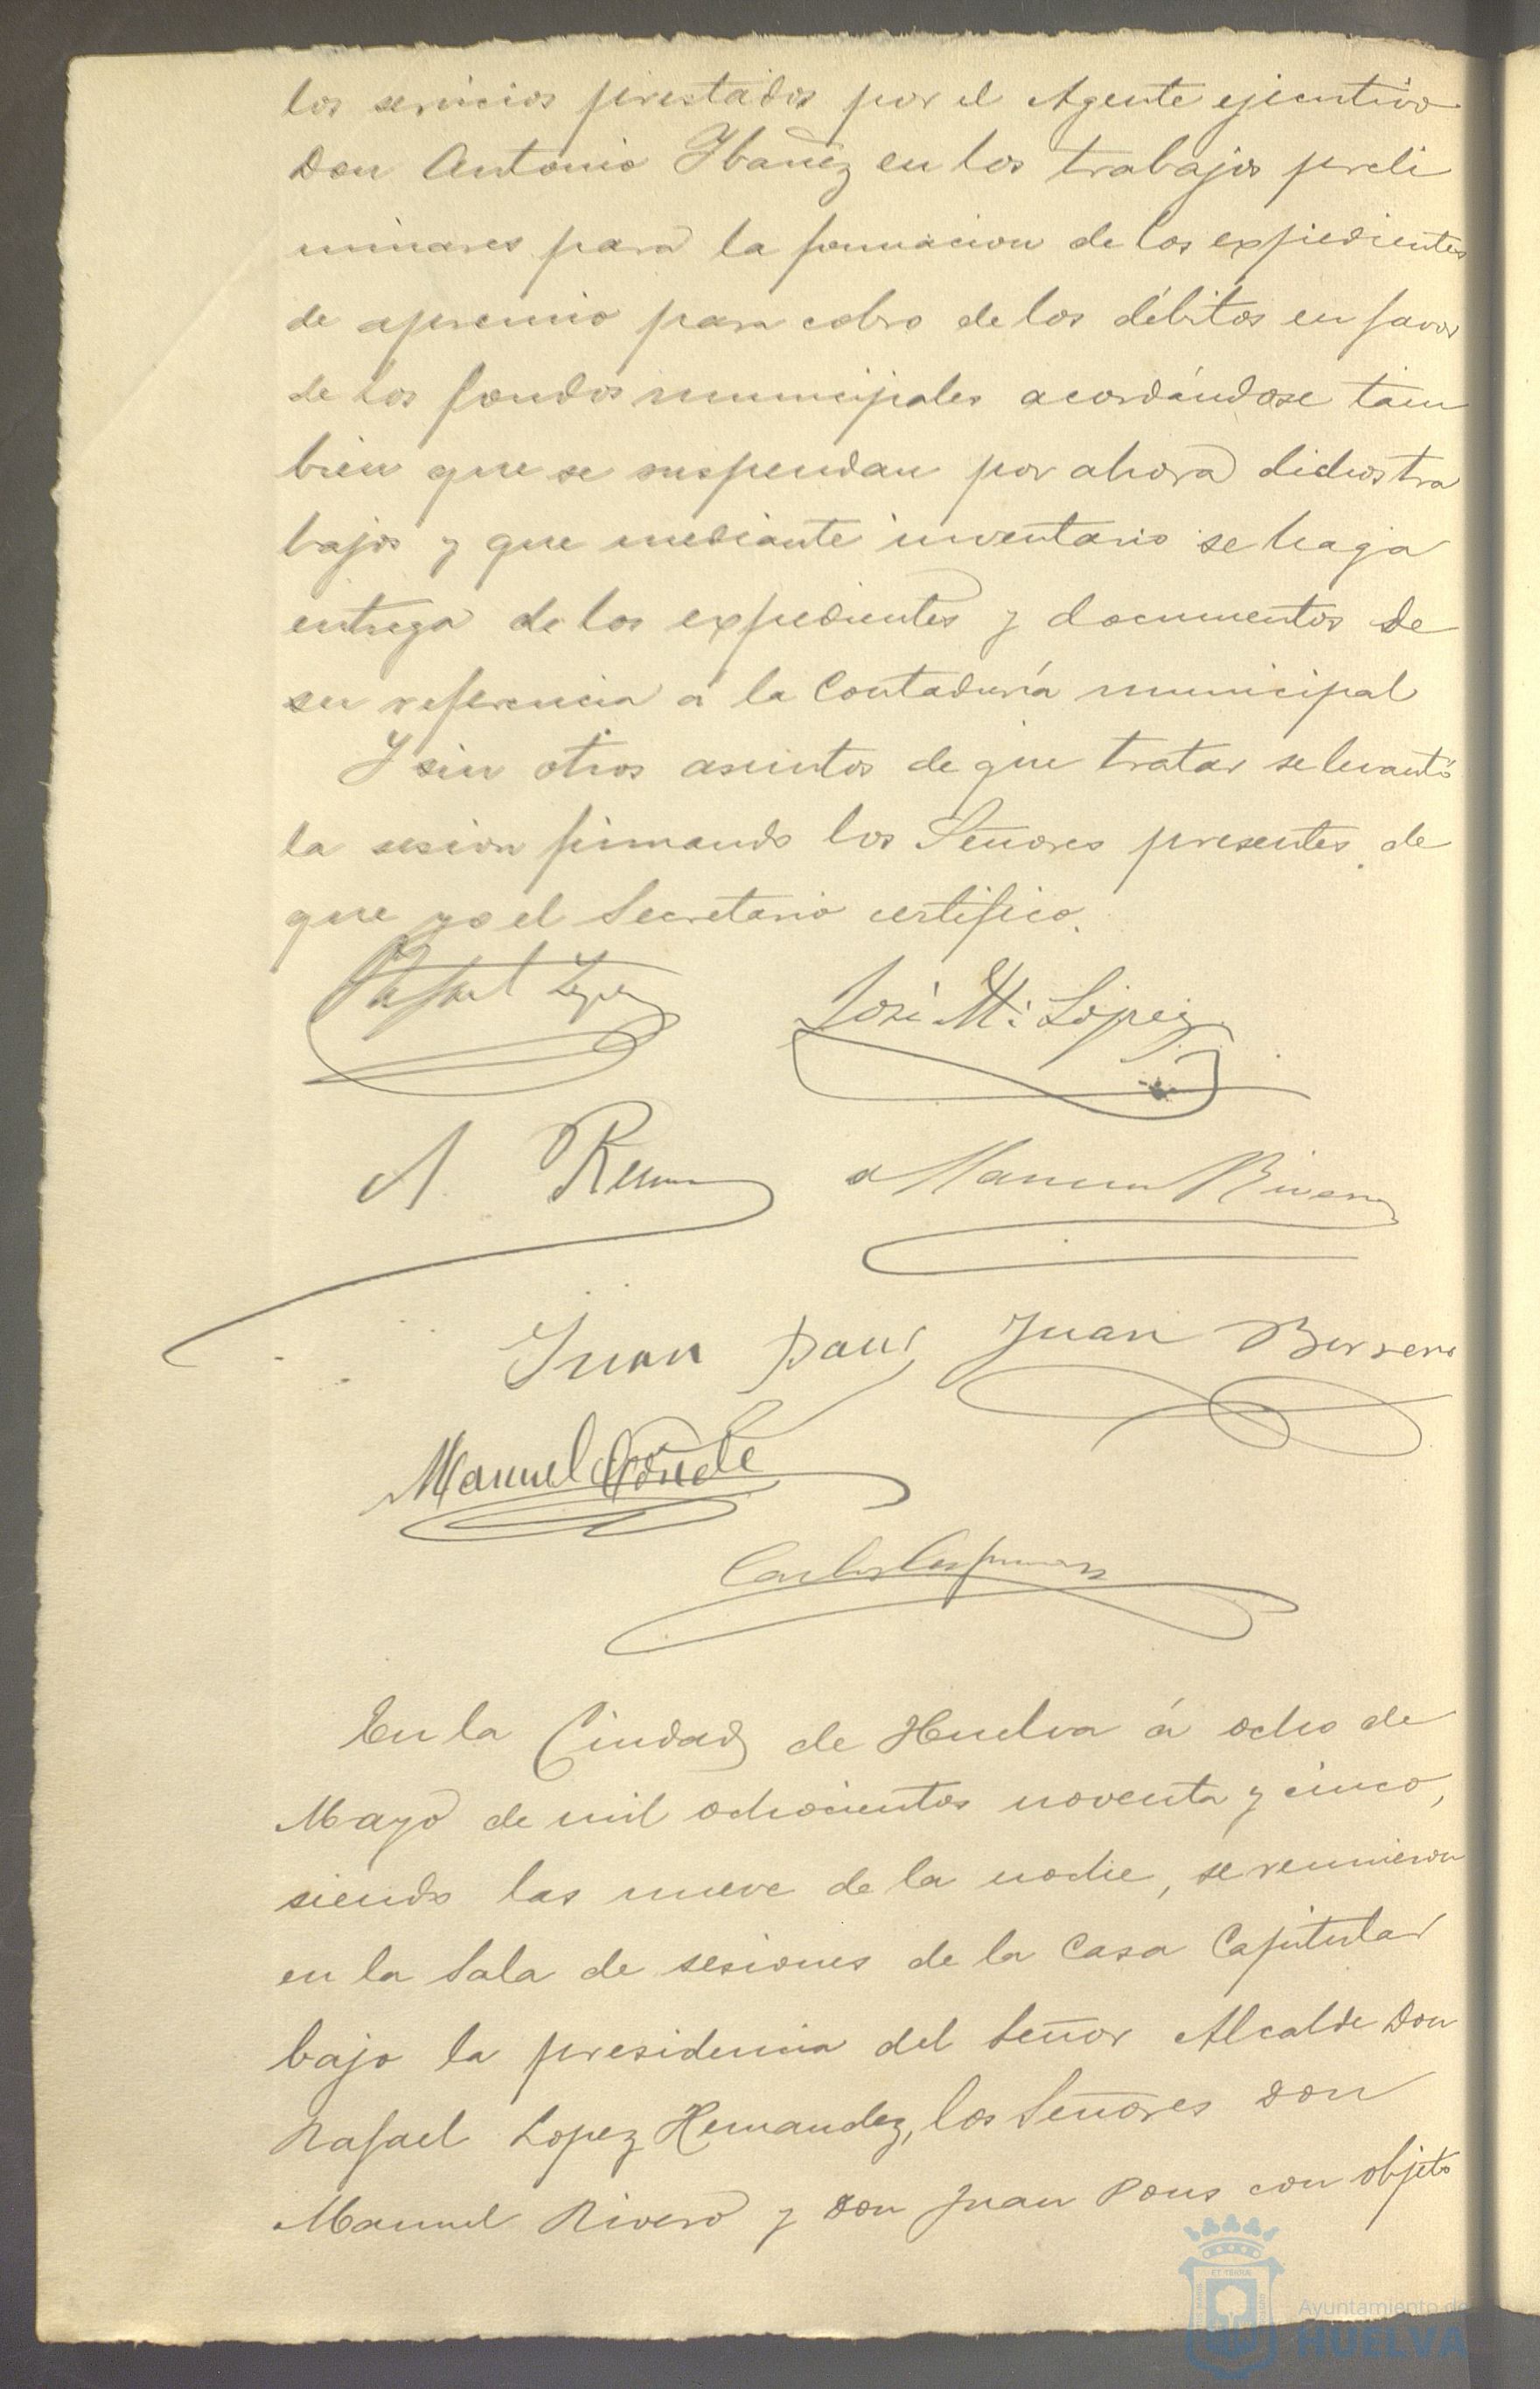 los servicios prestados por el Agente ejecutivo
Don Antonio Ibañez en los trabajos preli
minares para la formacion de los expedientes
de apremio para cobro de los débitos en favor
de los fondos municipales acordándose tam
bien que se suspendan por ahora dichos tra
bajos y que mediante inventario se haga
entrega de los expedientes y documentos de
su referencia á la Contaduría municipal
Y sin otros asuntos de que tratar se levantó
la sesion firmando los Señores presentes de
que yo el Secretario certifico.
Rafael Lopez José Mª López
A. Manuel Rivero
Juan Pons Juan Borrero
Manuel Conde
Carlos
En la Ciudad de Huelva á ocho de
Mayo de mil ochocientos noventa y cinco,
siendo las nueve de la noche, se reunieron
en la Sala de sesiones de la Casa Capitular
bajo la presidencia del Señor Alcalde Don
Rafael Lopez Hernandez, los Señores Don
Manuel Rivero y Don Juan Pons con objeto
Ayuntamiento de
HUELVA